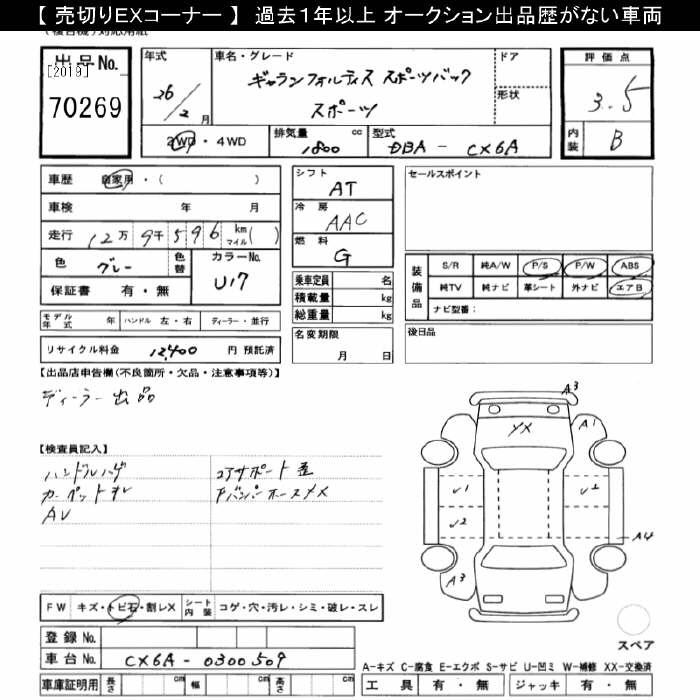 【 売切りEXコーナー 】 過去1年以上 オークション出品歴がない車両
出品No.
[2019]
70269
年式
26/2月
車名・グレード
ギャランフォルティス スポーツバック
スポーツ
ドア
形状
評価点
3.5
内装 B
2WD・4WD
排気量 1800 cc
型式 DBA - CX6A
車歴 自家用・( )
車検 年 月
走行 12万9千596 km マイル( )
色 グレー 色替
カラーNo. U17
保証書 有・無
シフト AT
冷房 AAC
燃料 G
乗車定員 名
積載量 kg
総重量 kg
セールスポイント
装備品
S/R 純A/W P/S P/W ABS
純TV 純ナビ 革シート 外ナビ エアB
ナビ型番:
モデル年式 年 ハンドル 左・右 ディーラー・並行
リサイクル料金 12,400 円 預託済
名変期限
月 日
後日品
【出品店申告欄(不良箇所・欠品・注意事項等)】
ディーラー出品
【検査員記入】
ハンドルハゲ
カーペットヨレ
AV
コアサポート歪
FバンパーホースメX
A3
YX
A1
✓1
✓2
✓2
A4
A3
FW キズ・トビ石・割レX シート内装 コゲ・穴・汚レ・シミ・破レ・スレ
登録No.
車台No. CX6A-0300509
車庫証明用 長さ cm 幅 cm 高さ cm
スペア
A-キズ C-腐食 E-エクボ S-サビ U-凹ミ W-補修 XX-交換済
工具 有・無 ジャッキ 有・無